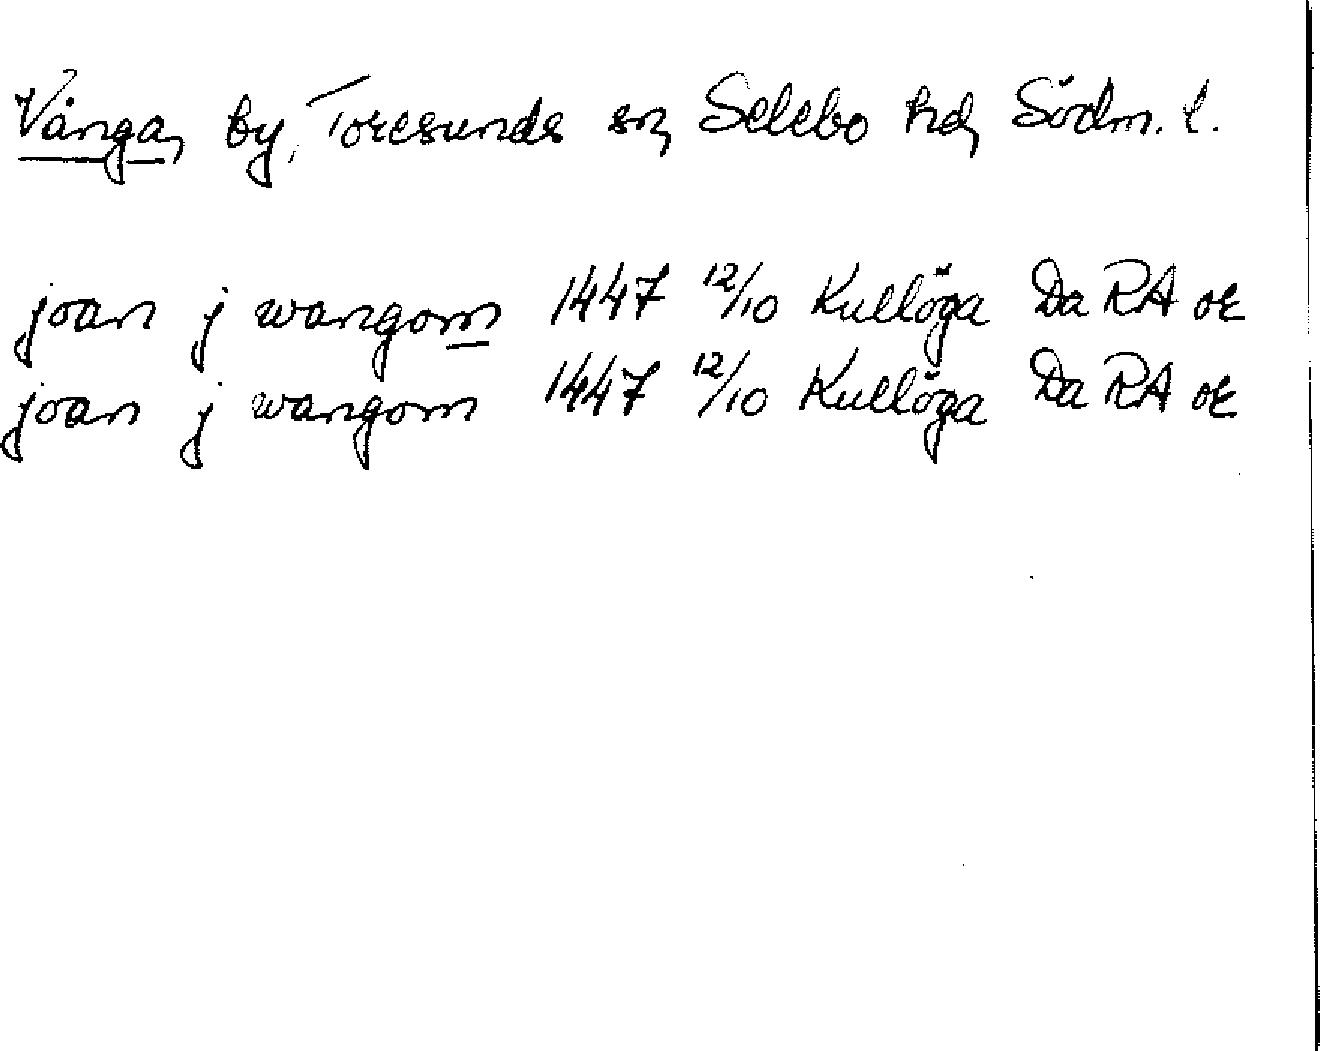 Vånga, by, Toresunds sn, Selebo hd, Södm. l.
joan j wangom 1447 12/10 Kullöga Da RA or
joan j wangom 1447 12/10 Kullöga Da RA or